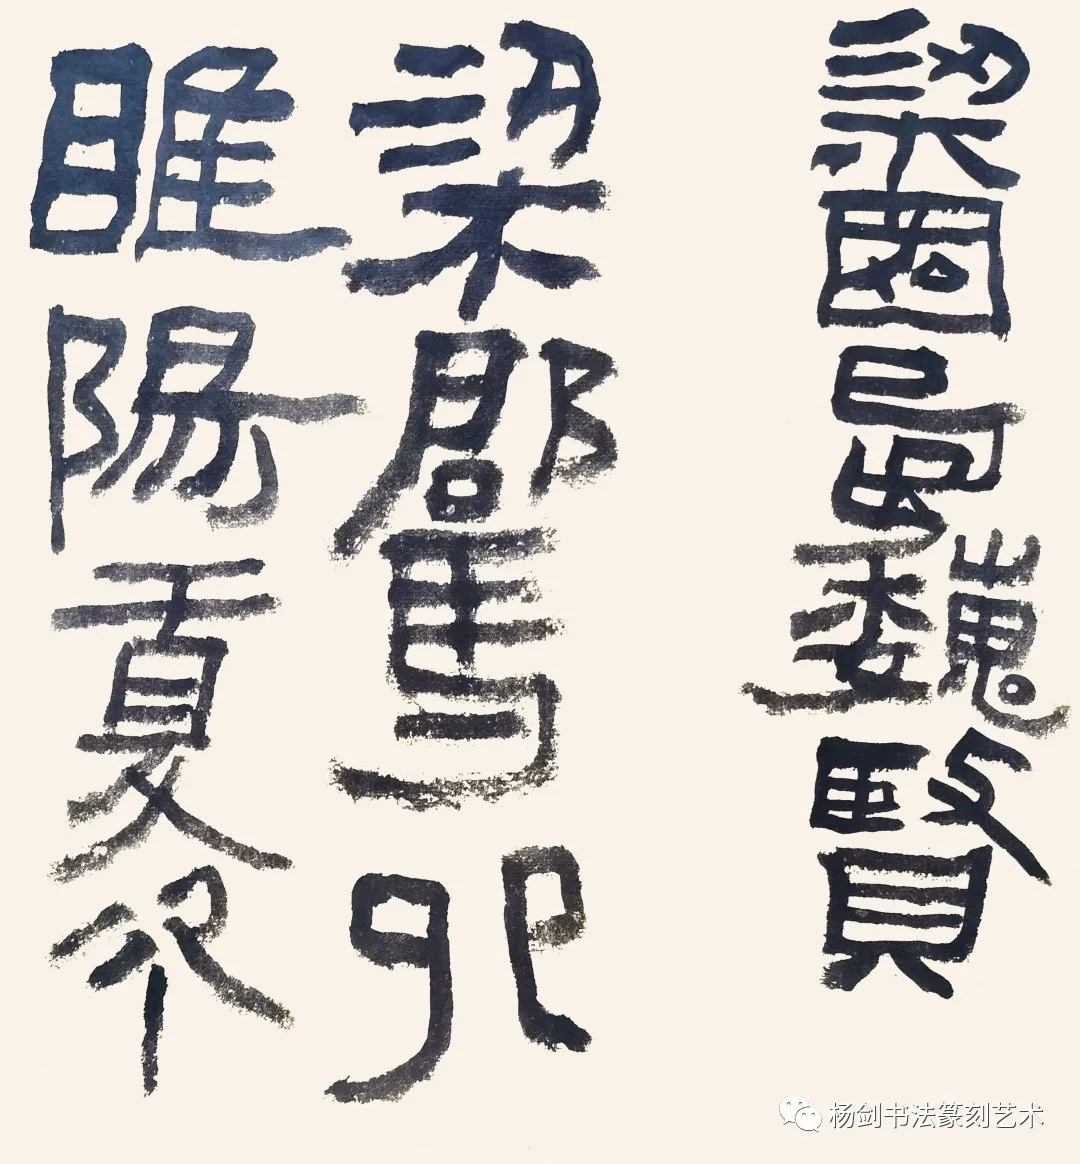 梁國魏賢
梁郡馬卯
睢陽夏
杨剑书法篆刻艺术